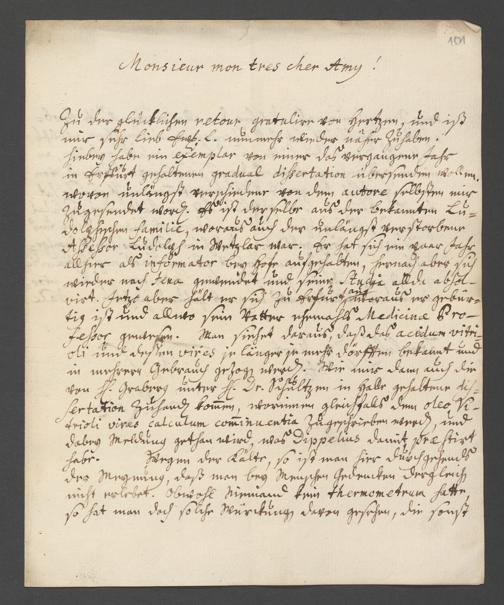 101
Monsieur mon tres cher Amy!
Zu der glücklichen retour gratulire von Hertzen, und ist
mir sehr lieb Ew. L. nunmehr wieder näher zu haben.
Hiebey habe ein exemplar von einer das vergangene Jahr
in Erfurt gehaltenen gradual dissertation übersenden wollen,
wovon unlängst verschiedene von dem autore selbsten mir
zugesendet word. Er ist derselbe aus der bekannten Lu-
dolphischen familie, woraus auch der unlängst verstorbene
Assessor Ludolph in Wetzlar war. Er hat sich ein paar Jahr
allhier als informator bey Hofe aufgehalten, hernach aber sich
wieder nach Jena gewendet und seine Studia allda absol-
virt. Jetzo aber hält er sich zu Erfurt woraus er gebür-
tig ist und allwo sein Vetter ehemahls Medicinæ Pro-
fessor gewesen. Man siehet daraus, daß das acidum vitri-
oli und dessen vires je länger je mehr dörfften bekannt und
in mehrern Gebrauch gezogen werd. Wie mir dann auch die
von H. Graberg unter H. Dr. Schultzen in Halle gehaltene dis-
sertation zuhand kommen, worinnen gleichfals dem oleo Vi-
trioli vires calculum cominuentia zugeschrieben werd, und
dabey Meldung gethan wird, was Dippelius damit præstirt
habe. Wegen der Kälte, so ist man hier durchgehends
der Meynung, daß man bey Menschen Gedencken dergleich
nicht erlebet. Obwohl Niemand kein thermometrum hatte,
so hat man doch solche Würckung davon gesehen, die sonst